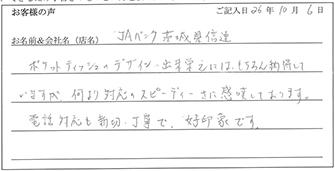 お客様の声
ご記入日 26年 10月 6日
お名前&会社名(店名) JAバンク茨城県信連
ポケットティッシュのデザイン・出来栄えには、もちろん納得して
いますが、何より対応のスピーディーさに感嘆しております。
電話対応も親切・丁寧で、好印象です。